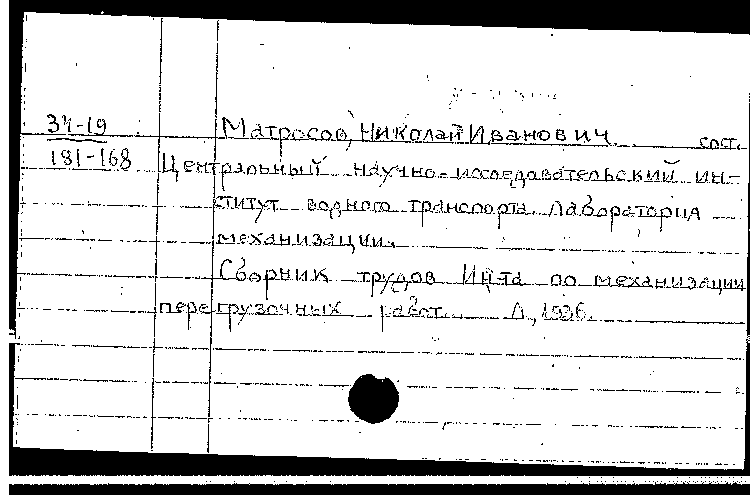 34-19 Матросов, Николай Иванович сост.
181-168 Центральный научно-исследовательский ин-
ститут водного транспорта. Лаборатория
механизации.
Сборник трудов Ин-та по механизации
перегрузочных работ. Л., 1936.